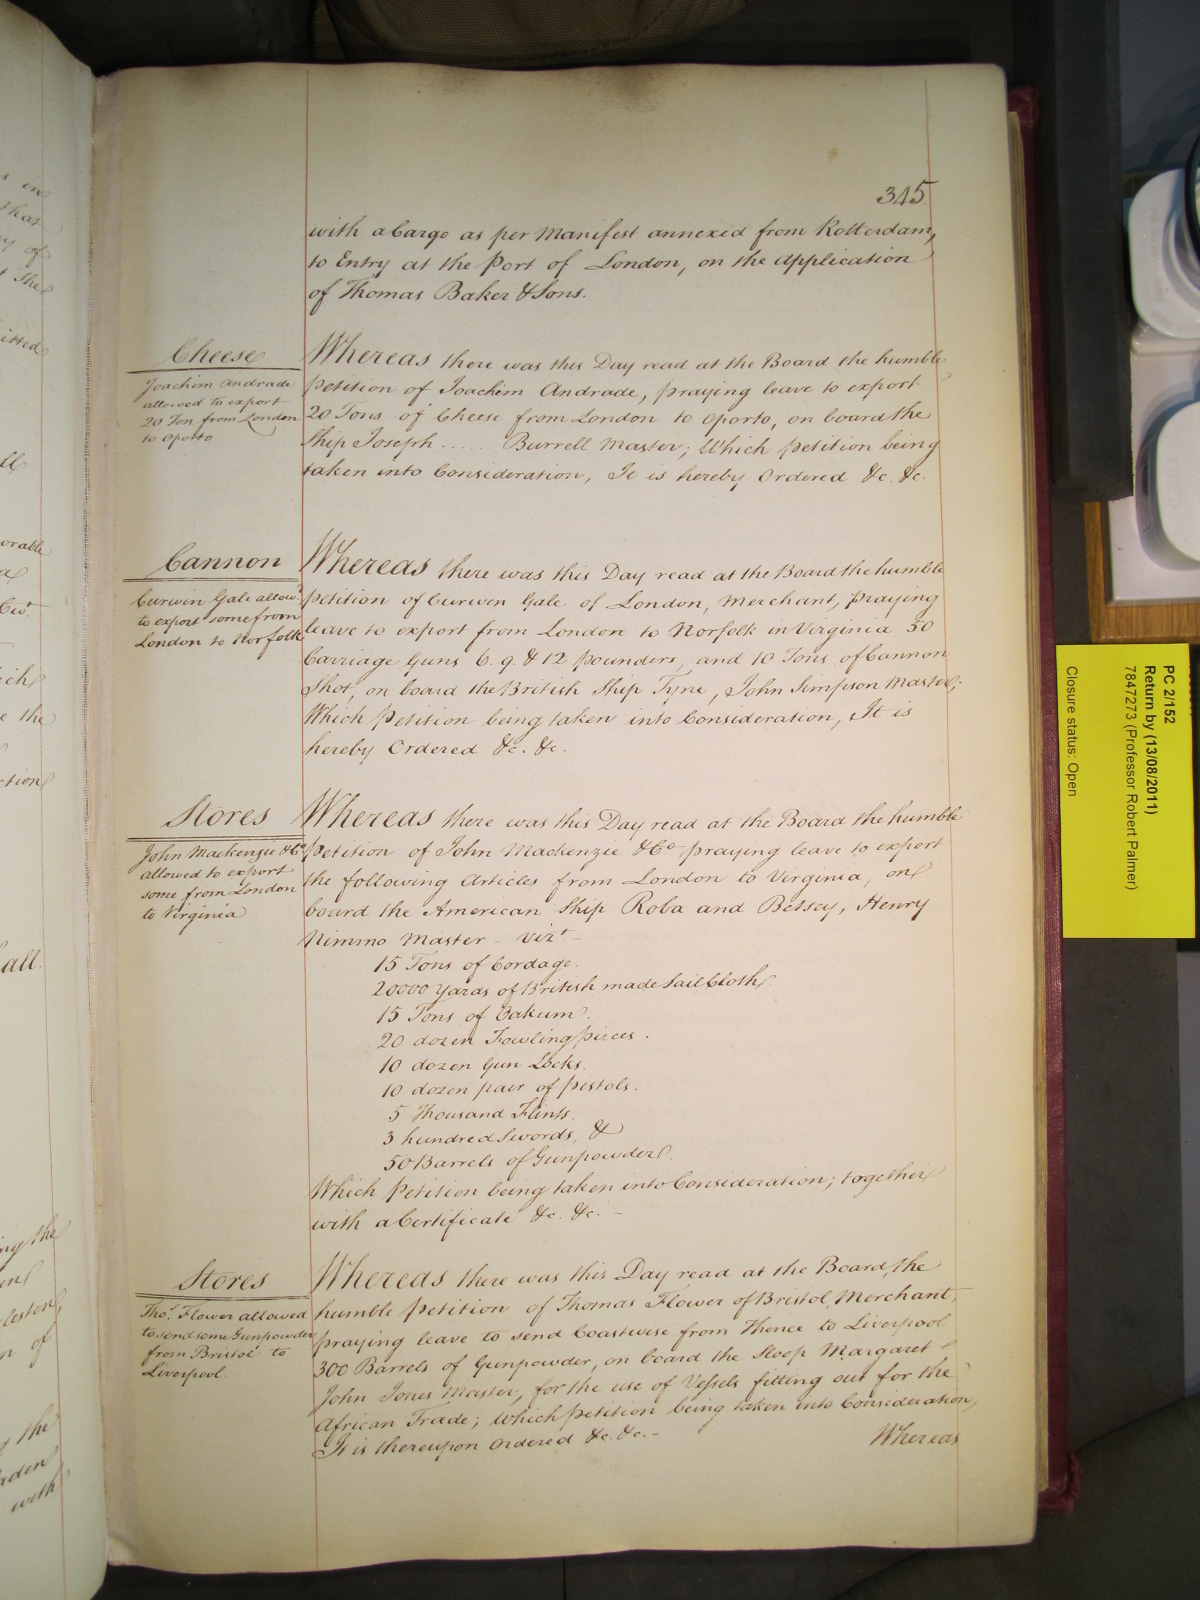 345
with a Cargo as per Manifest annexed from Rotterdam,
to Entry at the Port of London, on the application
of Thomas Baker & Sons.
Cheese
Joachim Andrade
allowed to export
20 Ton from London
to Oporto
Whereas there was this Day read at the Board the humble
Petition of Joachim Andrade, praying leave to export
20 Tons of Cheese from London to Oporto, on board the
Ship Joseph .... Burrell Master; Which Petition being
taken into Consideration, It is hereby Ordered &c. &c.
Cannon
Curwin Gale allow.d
to export some from
London to Norfolk
Whereas there was this Day read at the Board the humble
Petition of Curwen Gale of London, Merchant, Praying
leave to export from London to Norfolk in Virginia 50
Carriage Guns 6. 9. & 12 pounders, and 10 Tons of Cannon
Shot, on board the British Ship Tyne, John Simpson Master;
Which Petition being taken into Consideration, It is
hereby Ordered &c. &c.
Stores
John Mackenzie & Co
allowed to export
some from London
to Virginia
Whereas there was this Day read at the Board the humble
Petition of John Mackenzie & Co praying leave to export
the following Articles from London to Virginia, on
board the American Ship Roba and Betsey, Henry
Nimmo Master – vizt –
15 Tons of Cordage.
20000 Yards of British made Sail Cloth.
15 Tons of Oakum.
20 dozen Fowling pieces.
10 dozen Gun Locks.
10 dozen pair of pistols.
5 Thousand Flints.
3 hundred Swords, &
50 Barrels of Gunpowder.
Which Petition being taken into Consideration; together
with a Certificate &c. &c. –
Stores
Thos. Flower allowed
to send some Gunpowder
from Bristol to
Liverpool.
Whereas there was this Day read at the Board, the
humble Petition of Thomas Flower of Bristol, Merchant,
praying leave to send Coastwise from Thence to Liverpool
300 Barrels of Gunpowder, on board the Sloop Margaret
John Jones Master, for the use of Vessels fitting out for the
African Trade; Which Petition being taken into Consideration,
It is thereupon Ordered &c. &c. –
Whereas
PC 2/152
Return by (13/08/2011)
7847273 (Professor Robert Palmer)
Closure status: Open